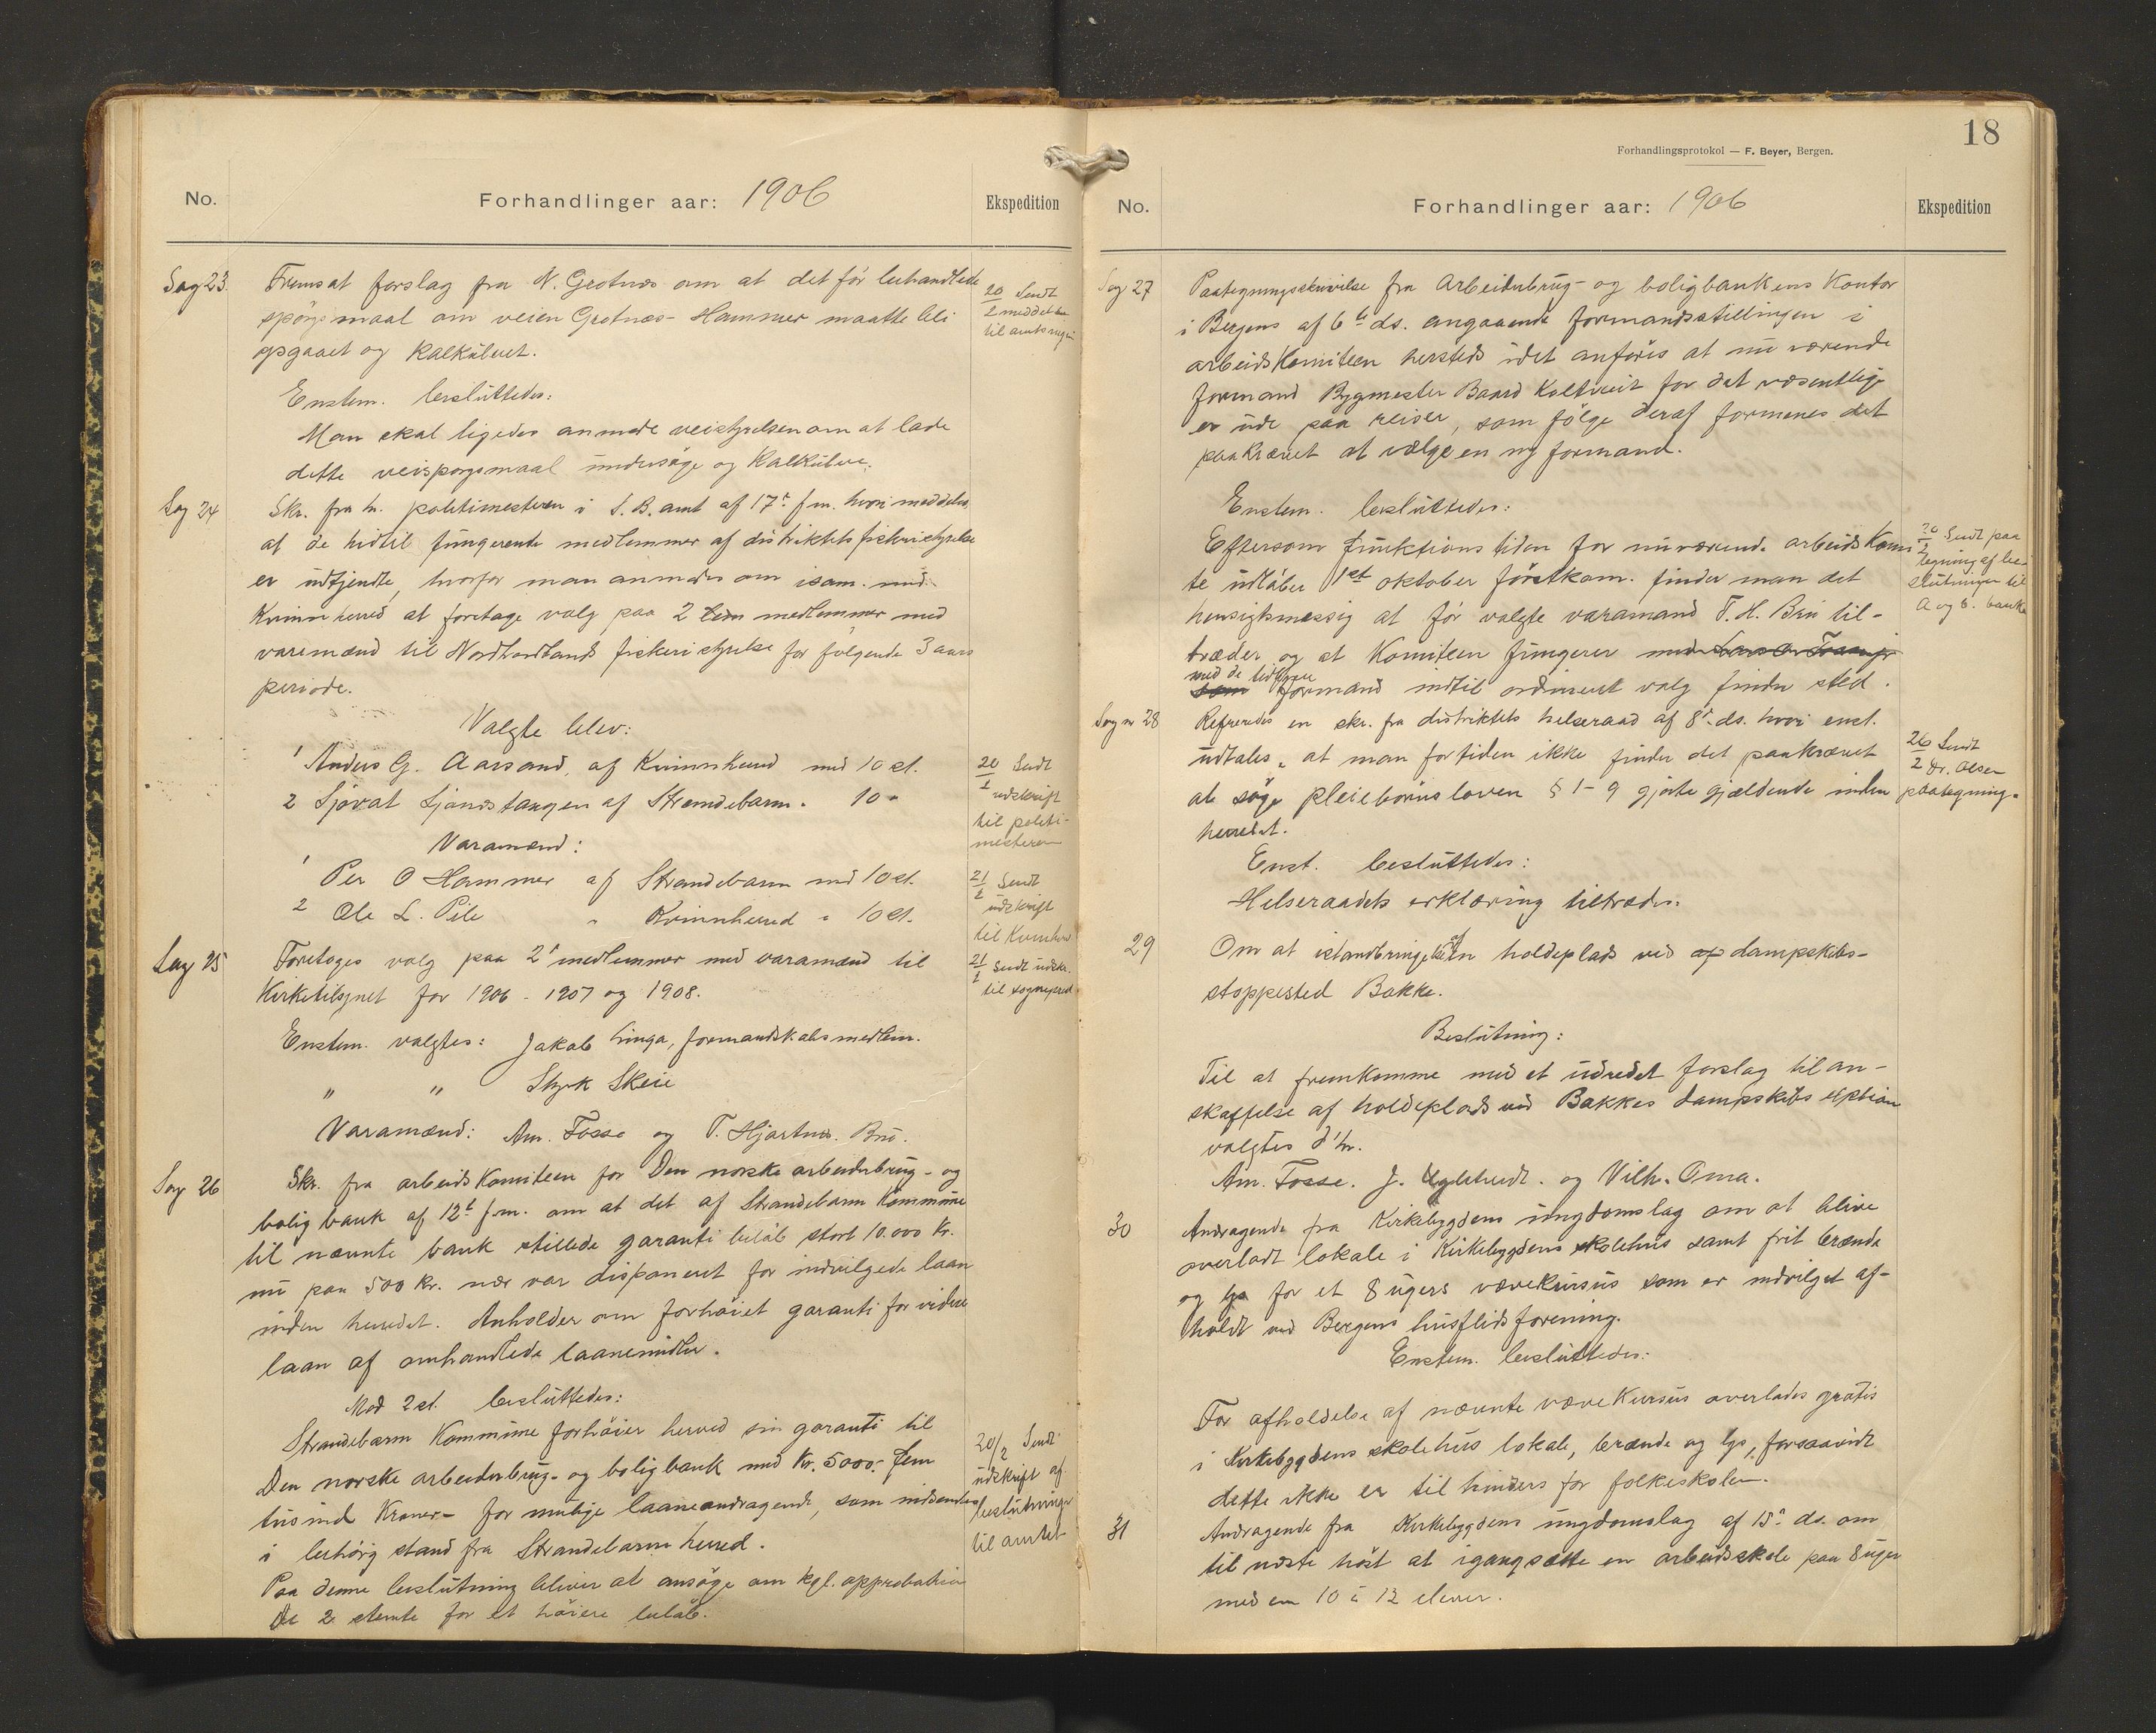 No.
Forhandlinger aar: 1906
Ekspedition
Sag 23.
Fremsat forslag fra N. Grotnæs om at det før behandlede
spørgsmaal om veien Grotnæs-Hammer maatte bli
opgaaet og kalkuleret.
Enstem. besluttedes:
Man skal ligedes anmode veistyrelsen om at lade
dette veispørgsmaal undersøge og kalkulere.
20/2 Sendt
meddelelse
til
Sag 24
Skr. fra hr. politimesteren i S. B. amt af 17de f.m. hvori meddeles
at de hidtil fungerende medlemmer af distriktets fiskeristyrelse
er udtjendte, hvorfor man anmodes om isam. med
Kvinnherred at foretage valg paa 2 medlemmer med
varemænd til Nordhordlands fiskeristyrelse for følgende 3 aars
periode.
Valgte blev:
1 Anders G. Aarsand, af Kvinnherred med 10 st.
2 Sjovat Sjonstangen af Strandebarm " 10 "
Varamænd:
1 Per O Hammer af Strandebarm med 10 st.
2 Ole L. Pile " Kvinnherred " 10 st.
20/2 Sendt
udskrift
til politi-
mesteren
21/2 Sendt
udskrift
til Kvinherred
Sag 25
Foretoges valg paa 2 medlemmer med varamænd til
Kirketilsynet for 1906 - 1907 og 1908.
Enstem. valgtes: Jakob Linga, formandskabsmedlem.
" " Styrk Skeie
Varamænd: Am. Fosse og T. Hjartnæs. Bru.
21/2 Sendt udskr.
til sogneprest
Sag 26
Skr. fra arbeidskomiteen for Den norske arbeiderbrug- og
boligbank af 12te f.m. om at det af Strandebarm kommune
til nævnte bank stillede garanti beløb stort 10.000 kr.
nu paa 500 kr. nær var disponeret for indvilgede laan
inden herredet. Anholder om forhøiet garanti for videre
laan af omhandlede laanemidler.
Mod 2 st. besluttedes:
Strandebarm kommune forhøier herved sin garanti til
Den norske arbeiderbrug- og boligbank med kr. 5000.- fem
tusind kroner- for mulige laaneandragende, som indsendes
i behørig stand fra Strandebarm herred.
Paa denne beslutning bliver at ansøge om kgl. approbation
De 2 stemte for et høiere beløb.
20/2 Sendt
udskrift af
beslutningen
til amtet
18
Forhandlingsprotokol — F. Beyer, Bergen.
No.
Forhandlinger aar: 1906
Ekspedition
Sag 27
Paategningsskrivelse fra Arbeiderbrug- og boligbankens kontor
i Bergens af 6te ds. angaaende formandsstillingen i
arbeidskomiteen hersteds idet anføres at nu værende
formand Bygmester Baard Koltveit for det væsentlige
er ude paa reiser, som følge deraf formenes det
paakrævet at vælge en ny formand.
Enstem. besluttedes:
Eftersom funktionstiden for nuværende arbeidskomi
te udløber 1st oktober førstkom. finder man det
hensigtsmæssig at før valgte varamand T. H. Bru til-
træder og at komiteen fungerer med Lars O.
med de tidligere
som formand indtil ordinært valg finder sted.
20/2 Sendt paa
tegning af be-
slutningen til
A og b. banken
Sag nr 28
Refereredes en skr. fra distriktets helseraad af 8de ds. hvori enst.
udtales, at man for tiden ikke finder det paakrævet
at søge pleiebørnsloven § 1 - 9 gjorte gjældende inden
herredet.
Enst. besluttedes:
Helseraadets erklæring tiltrædes.
26/2 Sendt
Dr. Olsen
paategning.
29
Om at istandbringelse af en holdeplads ved dampskibs-
stoppested Bakke.
Beslutning:
Til at fremkomme med et udredet forslag til an-
skaffelse af holdeplads ved Bakkes dampskibs
valgtes d'hr.
Am. Fosse. J. og Vilh. Oma.
30
Andragende fra Kirkebygdens ungdomslag om at blive
overladt lokale i Kirkebygdens skolehus samt frit brænde
og lys for et 8 ugers vævekursus som er indvilget af-
holdt ved Bergens husflidsforening.
Enstem. besluttedes:
For afholdelse af nævnte vævekursus overlades gratis
i Kirkebygdens skolehus lokale, brænde og lys, forsaavidt
dette ikke er til hinders for folkeskolen.
31
Andragende fra Kirkebygdens ungdomslag af 15de ds. om
til næste høst at igangsætte en arbeidsskole paa 8 uger
med en 10 à 12 elever.